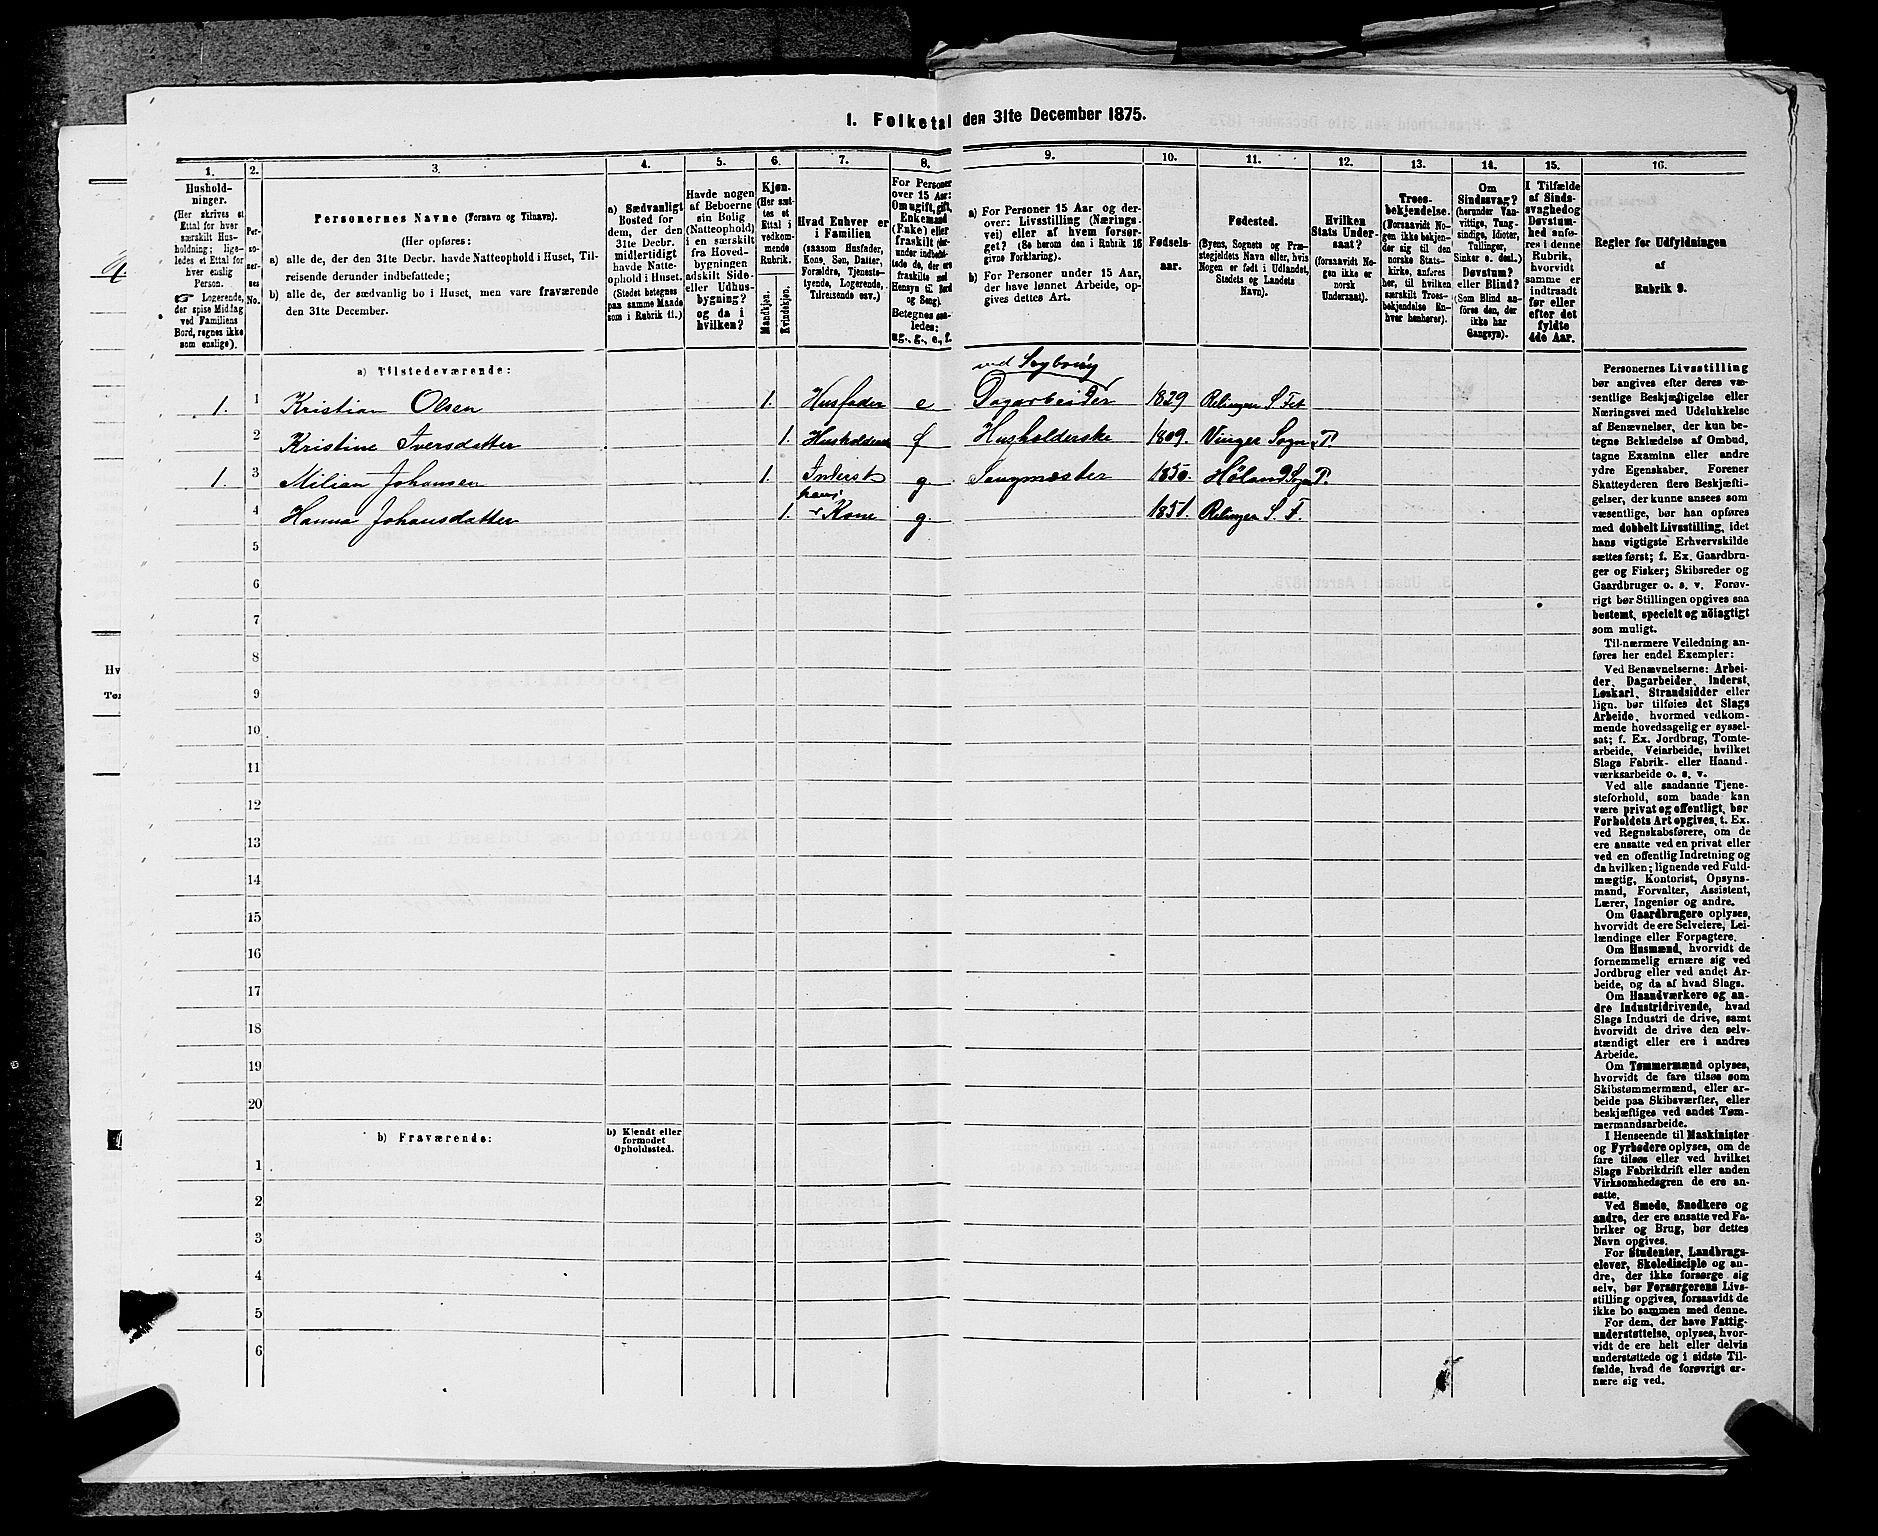 1. Folketal den 31te December 1875.
1.
2.
3.
4.
5.
6.
7.
8.
9.
10.
11.
12.
13.
14.
15.
16.
Hushold-
ninger.
(Her skrives et
Ettal for hver
særskilt Hus-
holdning; lige-
ledes et Ettal for
hver enslig
Person.
☞ Logerende,
der spise Middag
ved Familiens
Bord, regnes ikke
som enslige).
Per-
so-
ner-
nes
No.
Personernes Navne (Fornavn og Tilnavn).
(Her opføres:
a) alle de, der den 31te Decbr. havde Natteophold i Huset, Til-
reisende derunder indbefattede;
b) alle de, der sædvanlig bo i Huset, men vare fraværende
den 31te December.
a) Sædvanligt
Bosted for
dem, der den
31te Decbr.
midlertidigt
havde Natte-
ophold i Huset.
(Stedet betegnes
paa samme Maade
som i Rubrik 11.)
Havde nogen
af Beboerne
sin Bolig
(Natteophold)
i en særskilt
fra Hoved-
bygningen
adskilt Side-
eller Udhus-
bygning?
og da i
hvilken?
Kjøn.
(Her sæt-
tes et
Ettal i
vedkom-
mende
Rubrik.
Mandkjøn.
Kvindekjøn.
Hvad Enhver er
i Familien
(saasom Husfader,
Kone, Søn, Datter,
Forældre, Tjeneste-
tyende, Logerende,
Tilreisende osv.)
For Personer
over 15 Aar:
Om ugift, gift,
Enkemand
(Enke) eller
fraskilt
Hensyn til Bord
og Seng).
Betegnes saa-
ledes:
ug., g., e., f.
a) For Personer 15 Aar og der-
over: Livsstilling (Nærings-
vei) eller af hvem forsør-
get? (Se herom den i Rubrik 16
givne Forklaring).
b) For Personer under 15 Aar,
der have lønnet Arbeide, op-
gives dettes Art.
Fødsels-
aar.
Fødested.
(Byens, Sognets og Præ-
stegjeldets Navn, eller, hvis
Nogen er født i Udlandet,
Stedets og Landets
Navn).
Hvilken
Stats Under-
saat?
(forsaavidt No-
gen ikke er
norsk
Undersaat).
Troes-
bekjendelse.
(Forsaavidt No-
gen ikke bekjen-
der sig til den
norske Stats-
kirke, anføres
her, til hvilken
særskilt Troes-
bekjendelse En-
hver henhører).
Om
Sindssvag?
(herunder Van-
vittige, Tung-
sindige, Idioter,
Tullinger,
Sinker o. desl.)
Døvstum?
eller Blind?
(Som Blind an-
føres den, der
ikke har
Gangsyn).
I Tilfælde
af Sinds-
svaghed og
Døvstum-
hed anfø-
res i denne
Rubrik,
hvorvidt
samme er
indtraadt
før eller
efter det
fyldte
4de Aar.
Regler for Udfyldningen
af
Rubrik 9.
a) Tilstedeværende:
ved Sagbrug
1. 1 Kristian Olsen 1. Husfader e Dagarbeider 1829 Relingen S. Fet
2 Kristine Iversdatter 1. Husholderske f Husholderske 1809 Vinger Sogn, P.
1. 3 Milian Johansen 1. Inderst g Saugmester 1850. Høland Sogn P.
hans
4 Hanna Johansdatter 1. Kone g. 1851. Relingen S. F.
5
6
7
8
9
10
11
12
13
14
15
16
17
18
19
20
b) Fraværende:
b) Kjendt eller
formodet
Opholdssted.
1
2
3
4
5
6
Personernes Livsstilling
bør angives efter deres væ-
sentlige Beskjæftigelse eller
Næringsvei med Udelukkelse
af Benævnelser, der kun be-
tegne Beklædelse af Ombud,
tagne Examina eller andre
ydre Egenskaber. Forener
Skatteyderen flere Beskjæfti-
gelser, der kunne ansees som
væsentlige, bør han opføres
med dobbelt Livsstilling, idet
hans vigtigste Erhvervskilde
sættes først; f. Ex. Gaardbru-
ger og Fisker; Skibsreder og
Gaardbruger o. s. v. Forøv-
rigt bør Stillingen opgives saa
bestemt, specielt og nöiagtigt
som muligt.
Til nærmere Veiledning an-
føres her endel Exempler:
Ved Benævnelserne: Arbei-
der, Dagarbeider, Inderst,
Løskarl, Strandsidder eller
lign. bør tilføies det Slags
Arbeide, hvormed vedkom-
mende hovedsagelig er syssel-
sat; f. Ex. Jordbrug, Tomte-
arbeide, Veiarbeide, hvilket
Slags Fabrik- eller Haand-
værksarbeide o. s. v.
Ved alle saadanne Tjene-
steforhold, som baade kan
være privat og offentligt, bør
Forholdets Art opgives, t. Ex.
ved Regnskabsførere, om de
ere ansatte ved en privat eller
ved en offentlig Indretning og
da hvilken; lignende ved Fuld-
mægtig, Kontorist, Opsyns-
mand, Forvalter, Assistent,
Lærer, Ingeniør og andre.
Om Gaardbrugere oplyses,
hvorvidt de ere Selveiere, Lei-
lændinge eller Forpagtere.
Om Husmænd, hvorvidt de
fornemmelig ernære sig ved
Jordbrug eller ved andet Ar-
beide, og da af hvad Slags.
Om Haandværkere og an-
dre Industridrivende, hvad
Slags Industri de drive, samt
hvorvidt de drive den selv-
stændigt eller ere i andres
Arbeide.
Om Tømmermænd oplyses,
hvorvidt de fare tilsøs som
Skibstømmermænd, eller ar-
beide paa Skibsværfter, eller
beskjæftiges ved andet Tøm-
mermandsarbeide.
I Henseende til Maskinister
og Fyrbødere oplyses, om de
fare tilsøs eller ved hvilket
Slags Fabrikdrift eller anden
Virksomhedsgren de ere an-
satte.
Ved Smede, Snedkere og
andre, der ere ansatte ved Fa-
briker og Brug, bør dettes
Navn opgives.
For Studenter, Landbrugs-
elever, Skoledisciple og an-
dre, der ikke forsørge sig
selv, bør Forsørgerens Livs-
stilling opgives, forsaavidt de
ikke bo sammen med denne.
For dem, der have Fattig-
understøttelse, oplyses, hvor-
vidt de ere helt eller delvis
understøttede og i sidste Til-
fælde, hvad de forøvrigt er-
nære sig ved.